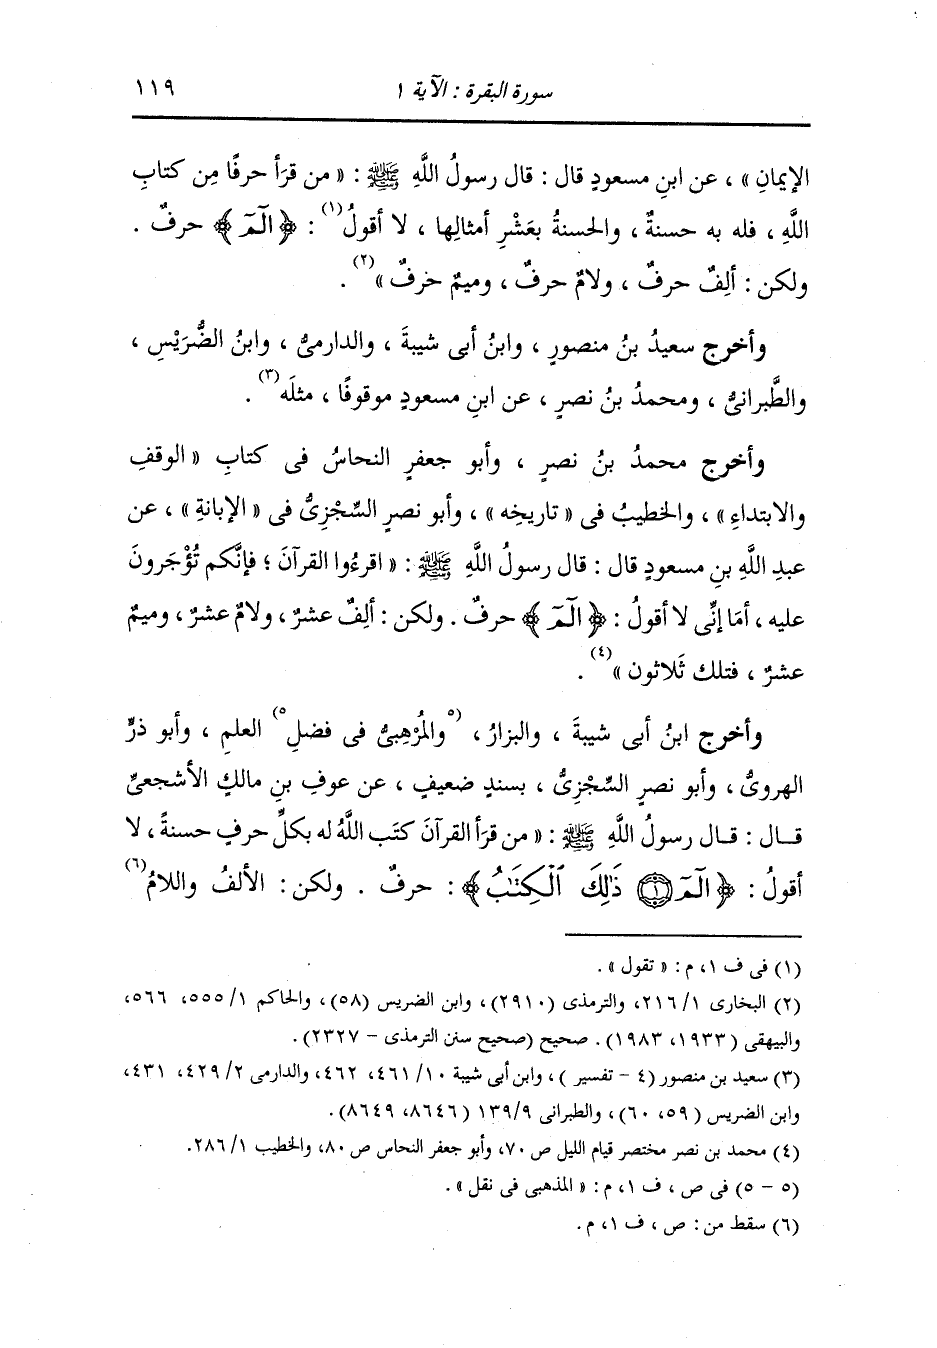 سورة البقرة : الآية ١ ١١٩
الإيمانِ » ، عن ابنِ مسعودٍ قال : قال رسولُ اللَّهِ ﷺ : « من قرَأ حرفًا مِن كتابِ
اللَّهِ ، فله به حسنةٌ ، والحسنةُ بعَشْرِ أمثالِها ، لا أقولُ(١) : ﴿ الٓمٓ ﴾ حرفٌ .
ولكن : ألِفٌ حرفٌ ، ولامٌ حرفٌ ، وميمٌ حرفٌ »(٢) .
وأخرج سعيدُ بنُ منصورٍ ، وابنُ أبى شيبةَ ، والدارمىُّ ، وابنُ الضُّرَيْسِ ،
والطَّبرانىُّ ، ومحمدُ بنُ نصرٍ ، عن ابنِ مسعودٍ موقوفًا ، مثلَه(٣) .
وأخرج محمدُ بنُ نصرٍ ، وأبو جعفرٍ النحاسُ فى كتابِ « الوقفِ
والابتداءِ » ، والخطيبُ فى « تاريخِه » ، وأبو نصرٍ السِّجْزِىُّ فى « الإبانةِ » ، عن
عبدِ اللَّهِ بنِ مسعودٍ قال : قال رسولُ اللَّهِ ﷺ : « اقرءُوا القرآنَ ؛ فإنَّكم تُؤْجَرونَ
عليه ، أمَا إنِّى لا أقولُ : ﴿ الٓمٓ ﴾ حرفٌ . ولكن : ألِفٌ عشرٌ ، ولامٌ عشرٌ ، وميمٌ
عشرٌ ، فتلك ثَلاثون »(٤) .
وأخرج ابنُ أبى شيبةَ ، والبزارُ ، (٥والمُرْهِبىُّ فى فضلِ٥) العلمِ ، وأبو ذرٍّ
الهروىُّ ، وأبو نصرٍ السِّجْزِىُّ ، بسندٍ ضعيفٍ ، عن عوفِ بنِ مالكٍ الأشجعىِّ
قال : قال رسولُ اللَّهِ ﷺ : « من قرَأ القرآنَ كتَب اللَّهُ له بكلِّ حرفٍ حسنةً ، لا
أقولُ : ﴿ الٓمٓ ۝١ ذَٰلِكَ ٱلْكِتَٰبُ ﴾ : حرفٌ . ولكن : الألفُ واللامُ(٦)
(١) فى ف ١، م : « تقول » .
(٢) البخارى ١/ ٢١٦، والترمذى (٢٩١٠)، وابن الضريس (٥٨) ، والحاكم ١/ ٥٥٥، ٥٦٦،
والبيهقى ( ١٩٣٣، ١٩٨٣) . صحيح (صحيح سنن الترمذى - ٢٣٢٧) .
(٣) سعيد بن منصور (٤ - تفسير )، وابن أبى شيبة ١٠/ ٤٦١، ٤٦٢، والدارمى ٢/ ٤٢٩، ٤٣١،
وابن الضريس ( ٥٩، ٦٠) ، والطبرانى ٩/ ١٣٩ ( ٨٦٤٦، ٨٦٤٩) .
(٤) محمد بن نصر مختصر قيام الليل ص ٧٠، وأبو جعفر النحاس ص ٨٠، والخطيب ١/ ٢٨٦.
(٥ - ٥) فى ص ، ف ١، م : « المذهبى فى نقل » .
(٦) سقط من : ص ، ف ١، م .